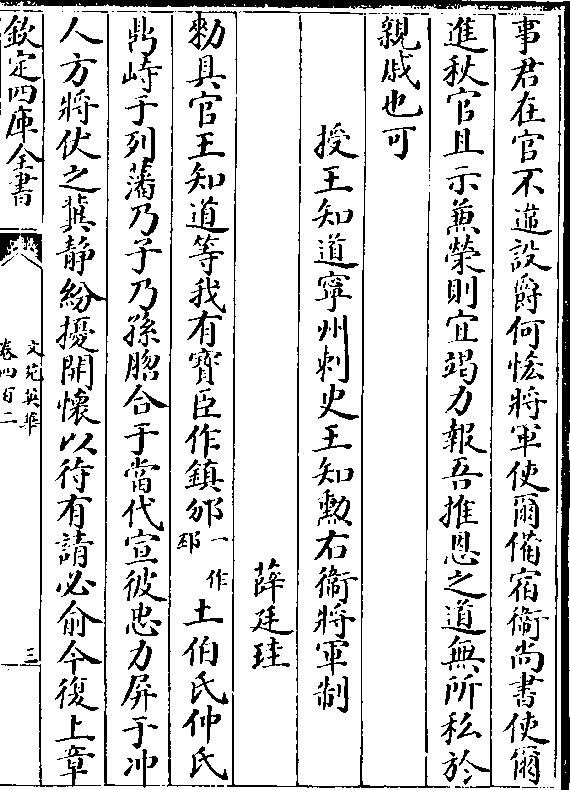 事君在官不遷設爵何恡將軍使爾備宿衞尚書使爾
進秋官且示兼榮則宜竭力報吾推恩之道無所私於
親戚也可
授王知道寧州刺史王知勲右衞將軍制
薛廷珪
勑具官王知道等我有寳臣作鎮邠一作邳土伯氏仲氏
鼎峙于列藩乃子乃孫脗合于當代宣彼忠力屏于冲
人方將伏之冀静紛擾開懷以待有請必俞今復上章
欽定四庫全書
文苑英華
卷四百二
三